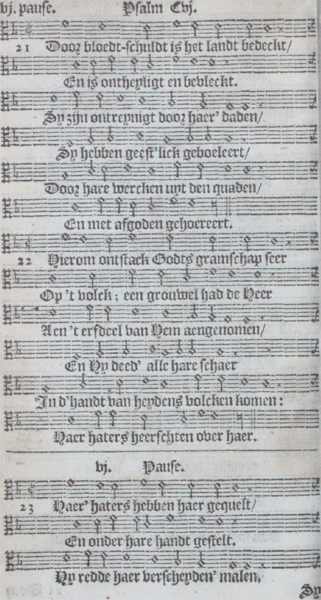 vj. pause. Psalm Cvj.
21 Door bloedt-schuldt is het landt bedeckt/
En is ontheyligt en bevleckt.
Sy zijn ontreynigt door haer' daden/
Sy hebben geest'lick geboeleert/
Door hare wercken uyt den quaden/
En met afgoden gehoereert.
22 Hierom ontstack Godts gramschap seer
Op 't volck; een grouwel had de Heer
Aen 't erfdeel van Hem aengenomen/
En Hy deed' alle hare schaer
In d'handt van heydens volcken komen:
Haer haters heerschten over haer.
vj. Pause.
23 Haer' haters hebben haer gequelt/
En onder hare handt gestelt.
Hy redde haer verscheyden' malen,
Sy